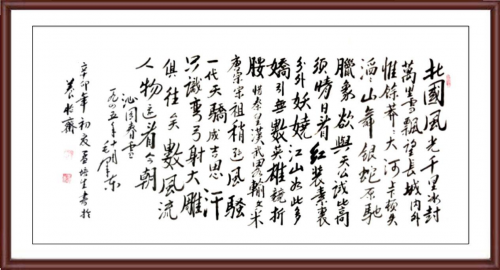 北國風光千里冰封
萬里雪飄望長城内外
惟餘莽々大河上下頓失
滔々山舞銀蛇原馳
臘象欲與天公試比高
須晴日看紅裝素裹
分外妖嬈江山如此多
嬌引無數英雄競折
腰惜秦皇漢武略輸文采
唐宗宋祖稍遜風騷
一代天驕成吉思汗
只識彎弓射大雕
俱往矣數風流
人物還看今朝
沁園春雪
一九四五年十月毛澤東
辛卯年初夏培生書於